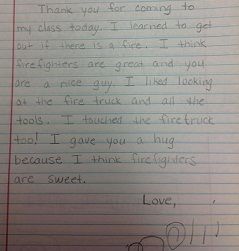 Thank you for coming to
my class today. I learned to get
out if there is a fire. I think
firefighters are great and you
are a nice guy. I liked looking
at the fire truck and all the
tools. I touched the firetruck
too! I gave you a hug
because I think firefighters
are sweet.
Love,